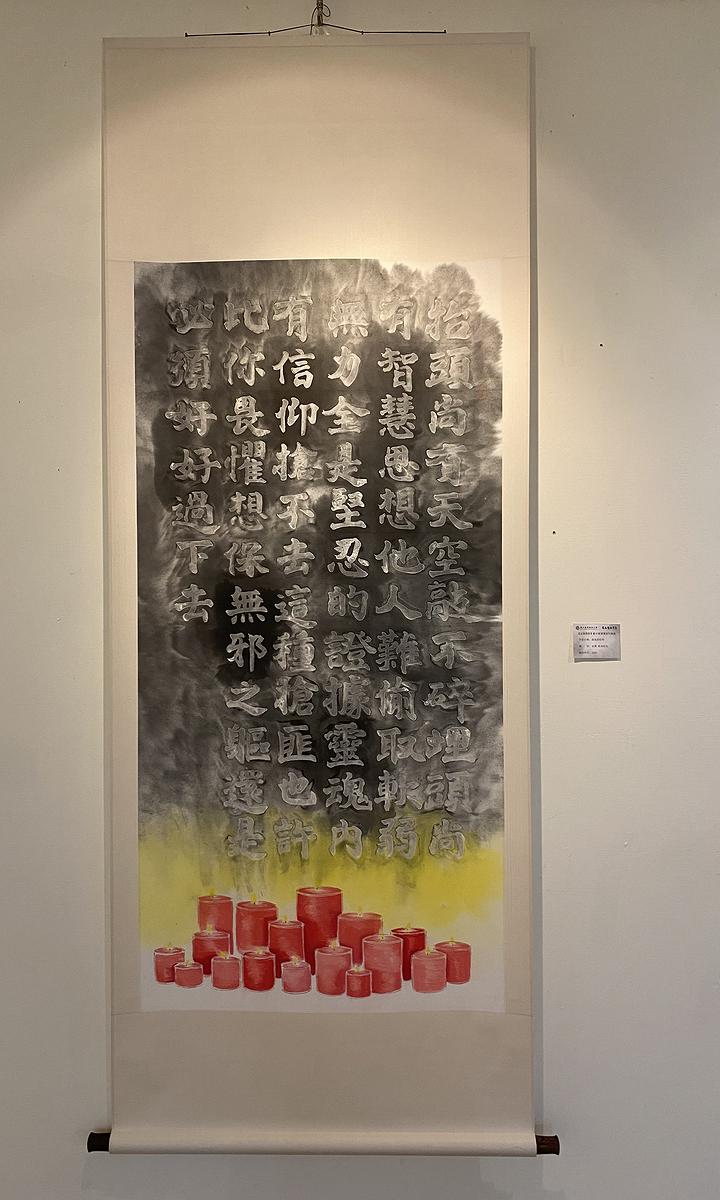 抬頭尚有天空敲不碎埋頭尚
有智慧思想他人難偷取軟弱
無力全是堅忍的證據靈魂內
有信仰搶不去這種搶匪也許
比你畏懼想保無邪之軀還是
必須好好過下去